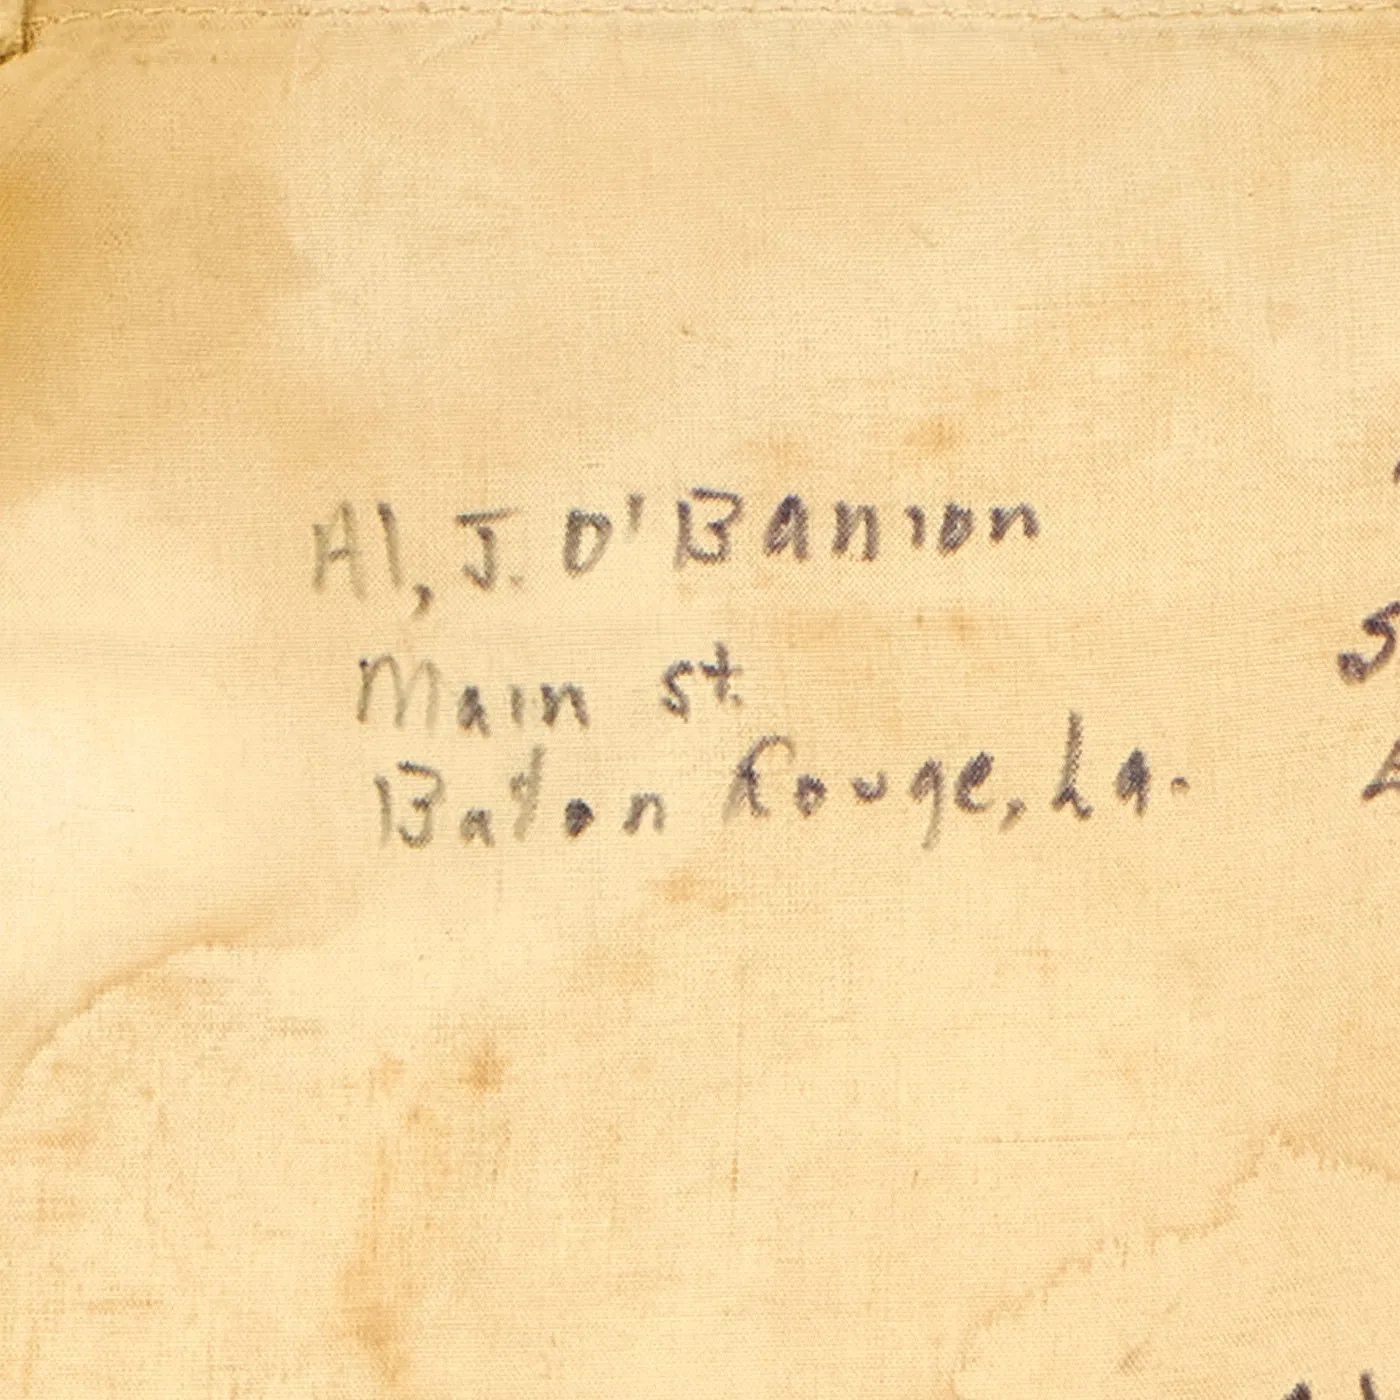 Al, J. O'Banion
Main st.
Baton Rouge, La.